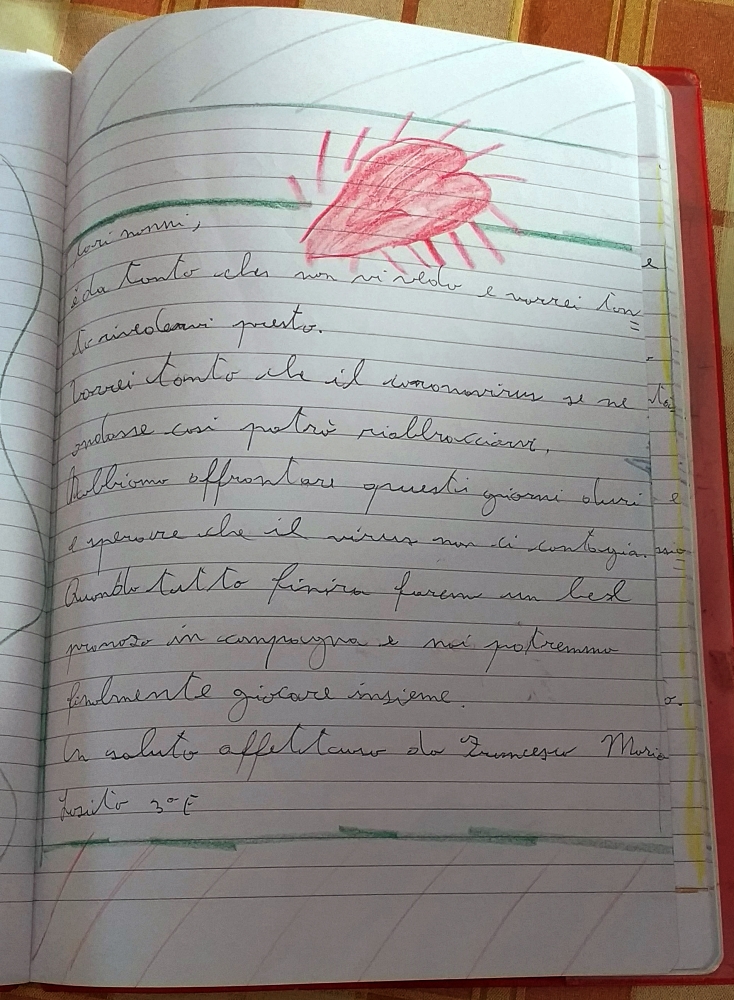 Cari nonni,
è da tanto che non vi vedo e vorrei tan=
to rivedervi presto.
Vorrei tanto che il coronavirus se ne
andasse così potrò riabbracciarvi.
Dobbiamo affrontare questi giorni duri
e sperare che il virus non ci contagia.
Quando tutto finira farem un bel
pranzo in campagna e noi potremmo
finalmente giocare insieme.
Un saluto affettuoso da Francesco Maria
Losito 3° E